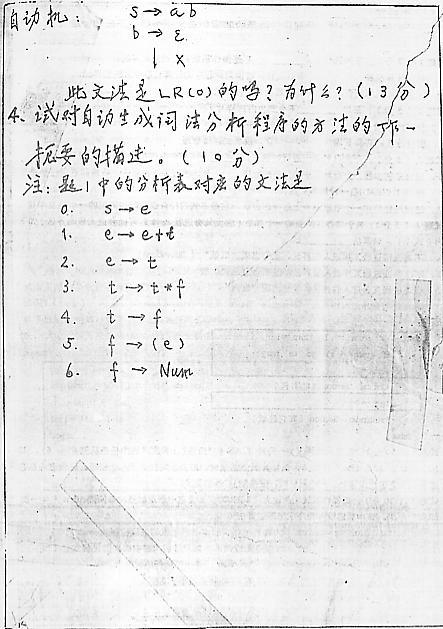 自动机: s → a b
b → ε
| x
此文法是LR(0)的吗? 为什么? (13分)
4. 试对自动生成词法分析程序的方法的作一
扼要的描述。(10分)
注: 题1中的分析表对应的文法是
0. s → e
1. e → e+t
2. e → t
3. t → t*f
4. t → f
5. f → (e)
6. f → Num